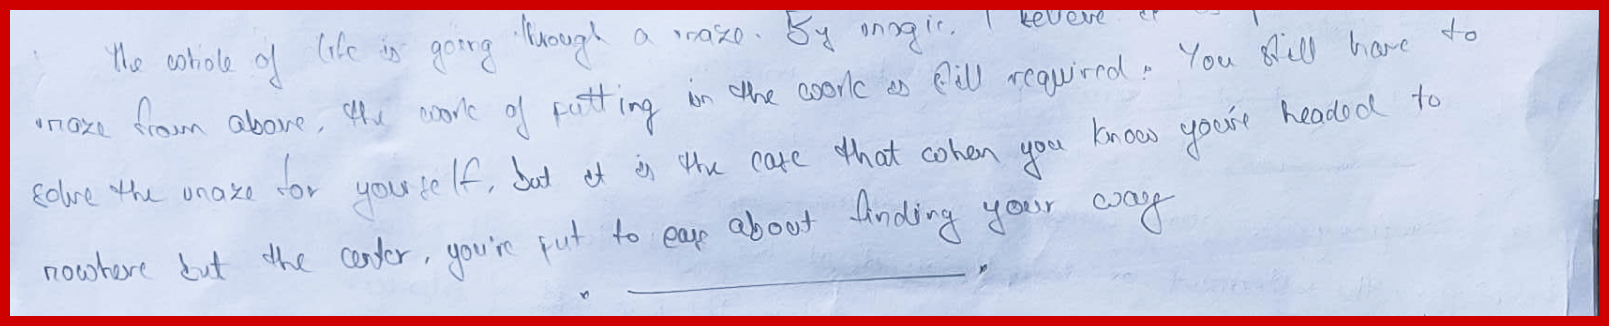 The whole of life is going through a maze. By magic, I believe it
maze from above, the work of putting in the work is still required. You still have to
solve the maze for yourself, but it is the case that when you know you're headed to
nowhere but the center, you're put to ease about finding your way